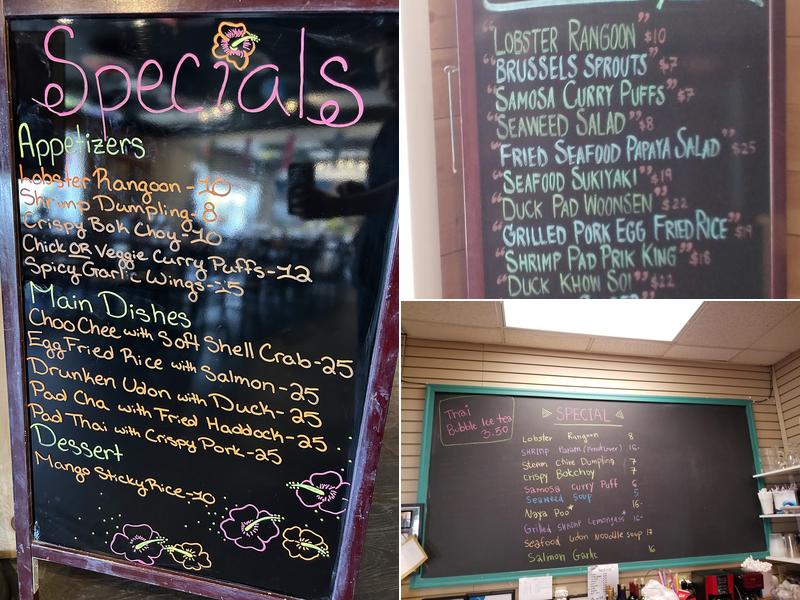 Specials
Appetizers
Lobster Rangoon - 10
Shrimp Dumpling - 8
Crispy Bok Choy - 10
Chick OR Veggie Curry Puffs - 12
Spicy Garlic Wings - 15
Main Dishes
Choo Chee with Soft Shell Crab - 25
Egg Fried Rice with Salmon - 25
Drunken Udon with Duck - 25
Pad Cha with Fried Haddock - 25
Pad Thai with Crispy Pork - 25
Dessert
Mango Sticky Rice - 10
"LOBSTER RANGOON" $10
"BRUSSELS SPROUTS" $7
"SAMOSA CURRY PUFFS" $7
"SEAWEED SALAD" $8
"FRIED SEAFOOD PAPAYA SALAD" $25
"SEAFOOD SUKIYAKI" $19
"DUCK PAD WOONSEN" $22
"GRILLED PORK EGG FRIED RICE" $19
"SHRIMP PAD PRIK KING" $18
"DUCK KHOW SOI" $22
Thai
Bubble Ice tea
3.50
SPECIAL
Lobster Rangoon 8
SHRIMP 16-
Steam Chive Dumpling 7
Crispy Bokchoy 7
Samosa Curry Puff 6
Seaweed Soup 5
Naya Poo* 16-
Grilled Shrimp Lemongrass* 16-
Seafood Udon Noodle Soup 17
Salmon Garlic 16